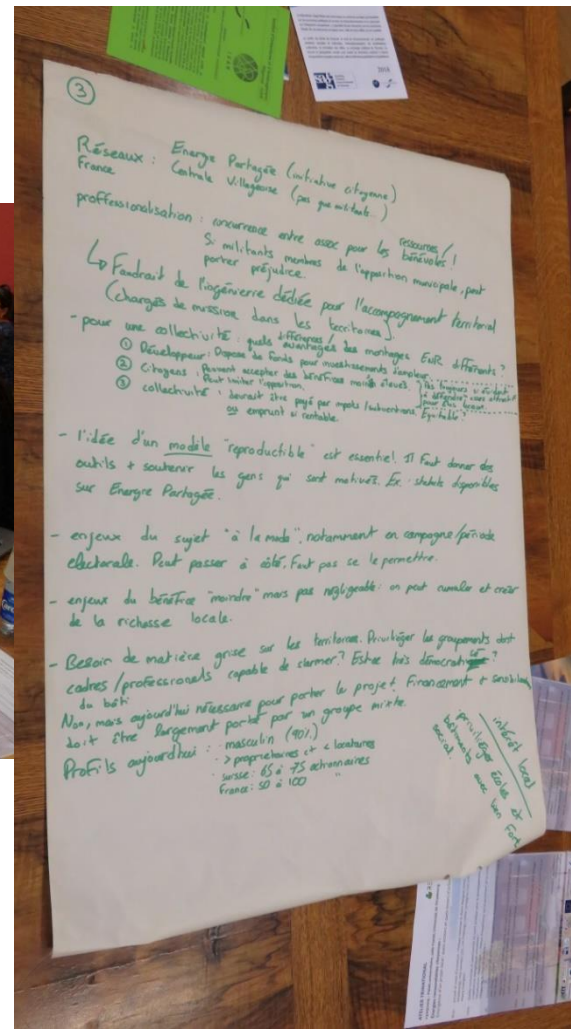 3
Réseaux : Energie Partagée (initiative citoyenne)
France Centrale Villageoise (pas que militants...)
proffessionalisation : concurrence entre assoc pour les ressources /
bénévoles !
Si militants membres de l'opposition municipale, peut
porter préjudice.
↳ Faudrait de l'ingénierie dédiée pour l'accompagnement territorial
(chargés de mission dans les territoires).
- pour une collectivité : quels différences/avantages des montages EnR différents ?
① Développeur : Dispose de fonds pour investissements d'ampleur.
② Citoyens : Peuvent accepter des bénéfices moins élevés.
Peut limiter l'opposition.
③ collectivité : devrait être payé par impots / subventions. Equitable ?
ou emprunt si rentable.
- l'idée d'un modèle "reproductible" est essentiel. Il faut donner des
outils + soutenir les gens qui sont motivés. Ex : statuts disponibles
sur Energie Partagée.
- enjeux du sujet "à la mode", notamment en campagne/période
électorale. Peut passer à côté. Faut pas se le permettre.
- enjeux du bénéfice "moindre" mais pas négligeable : on peut cumuler et créer
de la richesse locale.
- Besoin de matière grise sur les territoires. Privilégier les groupements dont
cadres / professionnels capable de ? Est-ce très démocratisé ?
du bâti
Non, mais aujourd'hui nécessaire pour porter le projet. Financement +
doit être largement porté par un groupe mixte.
Profils aujourd'hui : - masculin (90%)
- > propriétaires et < locataires
- suisse : 65 à 75 actionnaires
France : 50 à 100 "
intérêt local
privilégier écoles et
bâtiments avec lien fort
social.